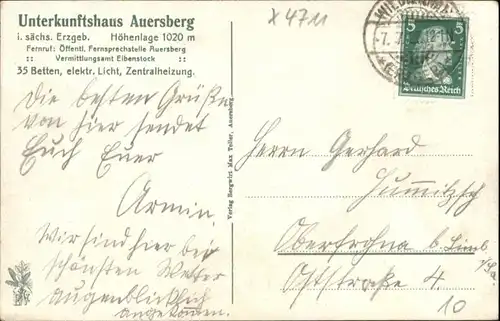 Unterkunftshaus Auersberg
i. sächs. Erzgeb. Höhenlage 1020 m
Fernruf: Öffentl. Fernsprechstelle Auersberg
:: Vermittlungsamt Eibenstock ::
35 Betten, elektr. Licht, Zentralheizung.
X 4711
5 5
Deutsches Reich
Die besten Grüße
von hier sendet
Euch Euer
Armin.
Wir sind hier bei
schönsten Wetter
augenblicklich
angekommen.
Verlag Bergwirt Max Tröler, Auersberg
Herrn Gerhard
Hummitzsch
Oberfrohna b. Limb.
i/Sa.
Oststraße 4.
10